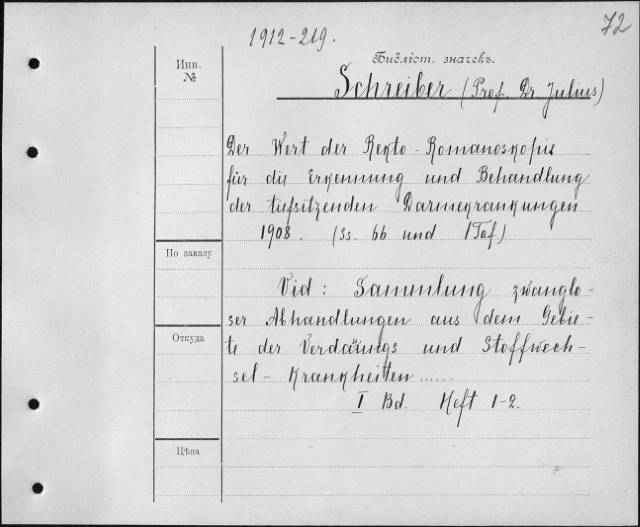 72
1912-219.
Библіот. значекъ.
Инв.
№
Schreiber (Prof. Dr Julius)
Der Wert der Rekto-Romanoskopie
für die Erkennung und Behandlung
der tiefsitzenden Darmekrankungen
1908. (Ss. 66 und 1 Taf)
По заказу
Vid: Sammlung zwanglo-
ser Abhandlungen aus dem Gebie-
Откуда
te der Verdaüngs und Stoffwech-
sel-Krankheiten......
I Bd. Heft 1-2.
Цѣна